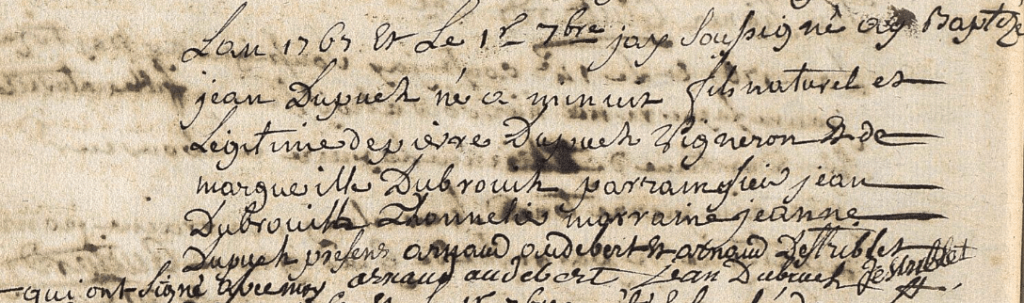 Lan 1767 et Le 1r 7bre jay soussigné ay Baptize
jean Dupuch né a minuit fils naturel et
Legitime de pierre Dupuch Vigneron et de
margueille Dubrouch parrain sieu jean
Dubrouilh Thonnelie marraine jeanne
Dupuch presens arnaud oudebert et arnaud Destriblet
qui ont signé avec moy arnaud audebert jean Dubruch